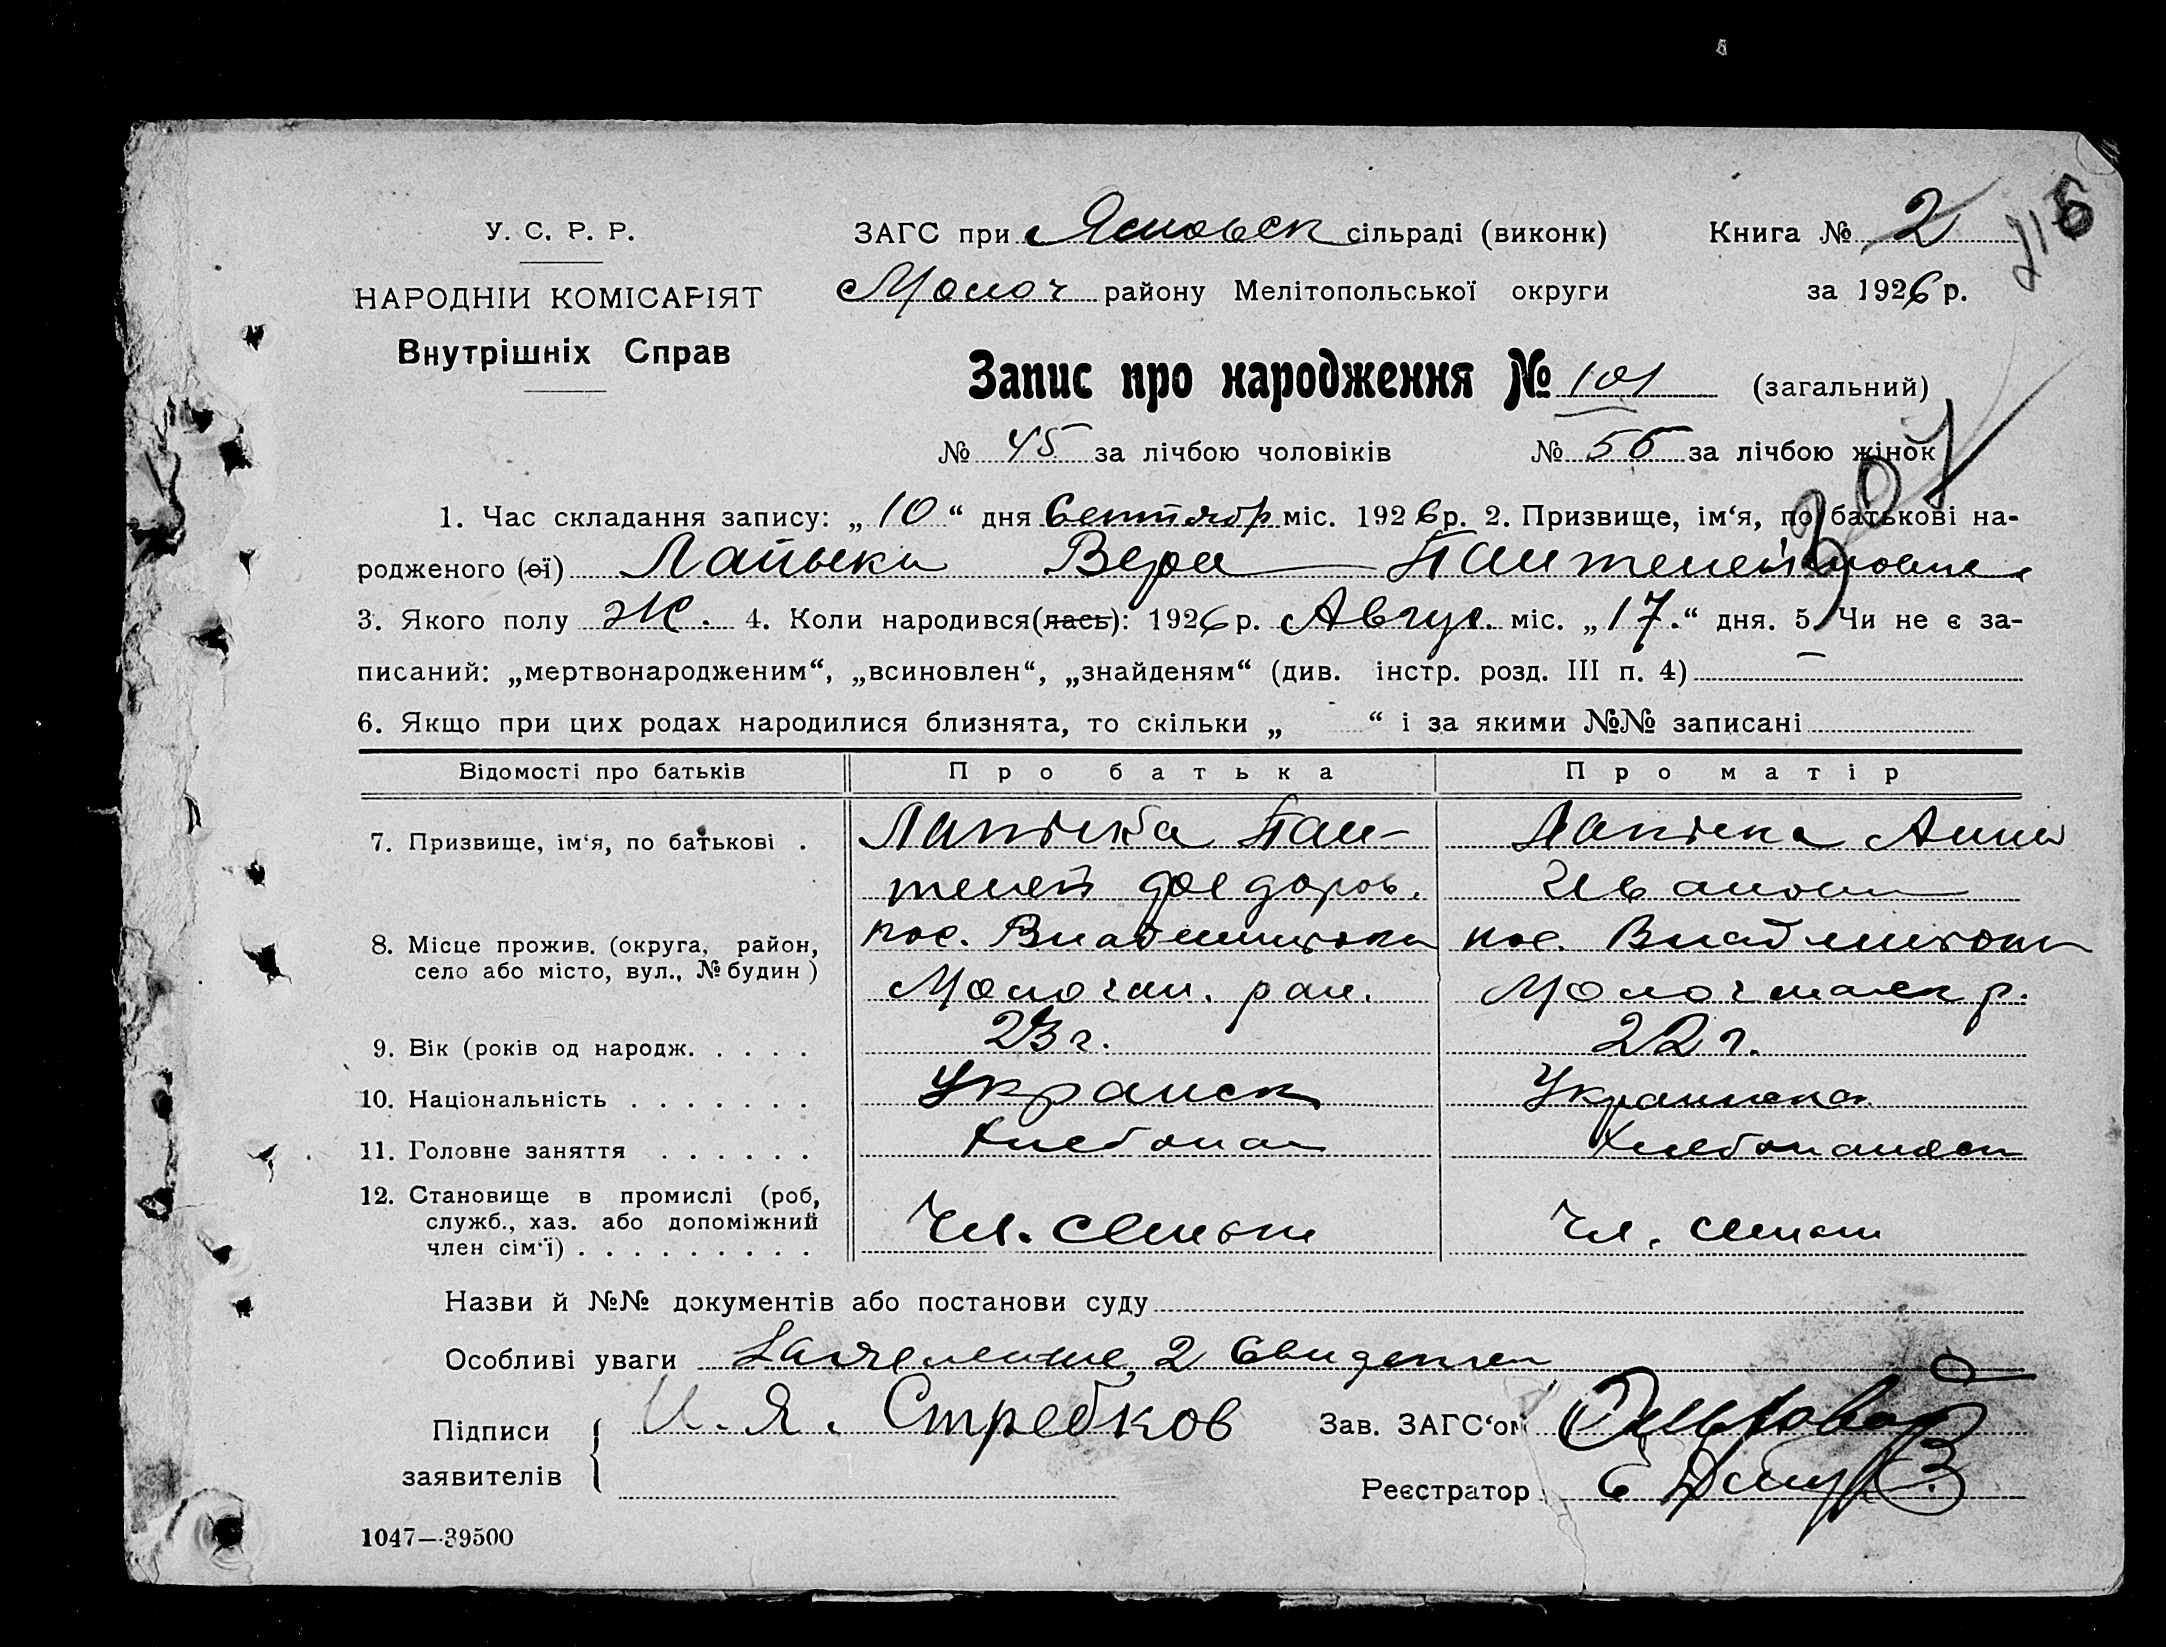 У. С. Р. Р.
НАРОДНІЙ КОМІСАРІЯТ
Внутрішніх Справ
ЗАГС при сільраді (виконк) Книга № 2
Молоч району Мелітопольської округи за 1926 р.
Запис про народження № 101 (загальний)
№ 45 за лічбою чоловіків № 56 за лічбою жінок
307
1. Час складання запису: „10“ дня Сентябр міс. 1926 р. 2. Призвище, ім‘я, по батькові на-
родженого (ої) Вера
3. Якого полу Ж. 4. Коли народився(лась): 1926 р. Авгус. міс. „17.“ дня. 5. Чи не є за-
писаний: „мертвонародженим“, „всиновлен“, „знайденям“ (див. інстр. розд. III п. 4) —
6. Якщо при цих родах народилися близнята, то скільки „ “ і за якими №№ записані
Відомості про батьків Про батька Про матір
7. Призвище, ім‘я, по батькові . Лапіка Пан- Лапіка Анна
телей Федоров. Иванов
8. Місце прожив. (округа, район, пос. пос.
село або місто, вул., № будин) Молочан. рай. р.
9. Вік (років од народж. . . . . 23 г. 22 г.
10. Національність . . . . . . . Украинск Украинска
11. Головне заняття . . . . . . Хлебопаш
12. Становище в промислі (роб, Чл. семьи Чл. семьи
служб., хаз. або допоміжний
член сім‘ї) . . . . . . . . .
Назви й №№ документів або постанови суду
Особливі уваги 2
Підписи И. Я. Стребков Зав. ЗАГС‘ом
заявителів
Реєстратор
1047—39500